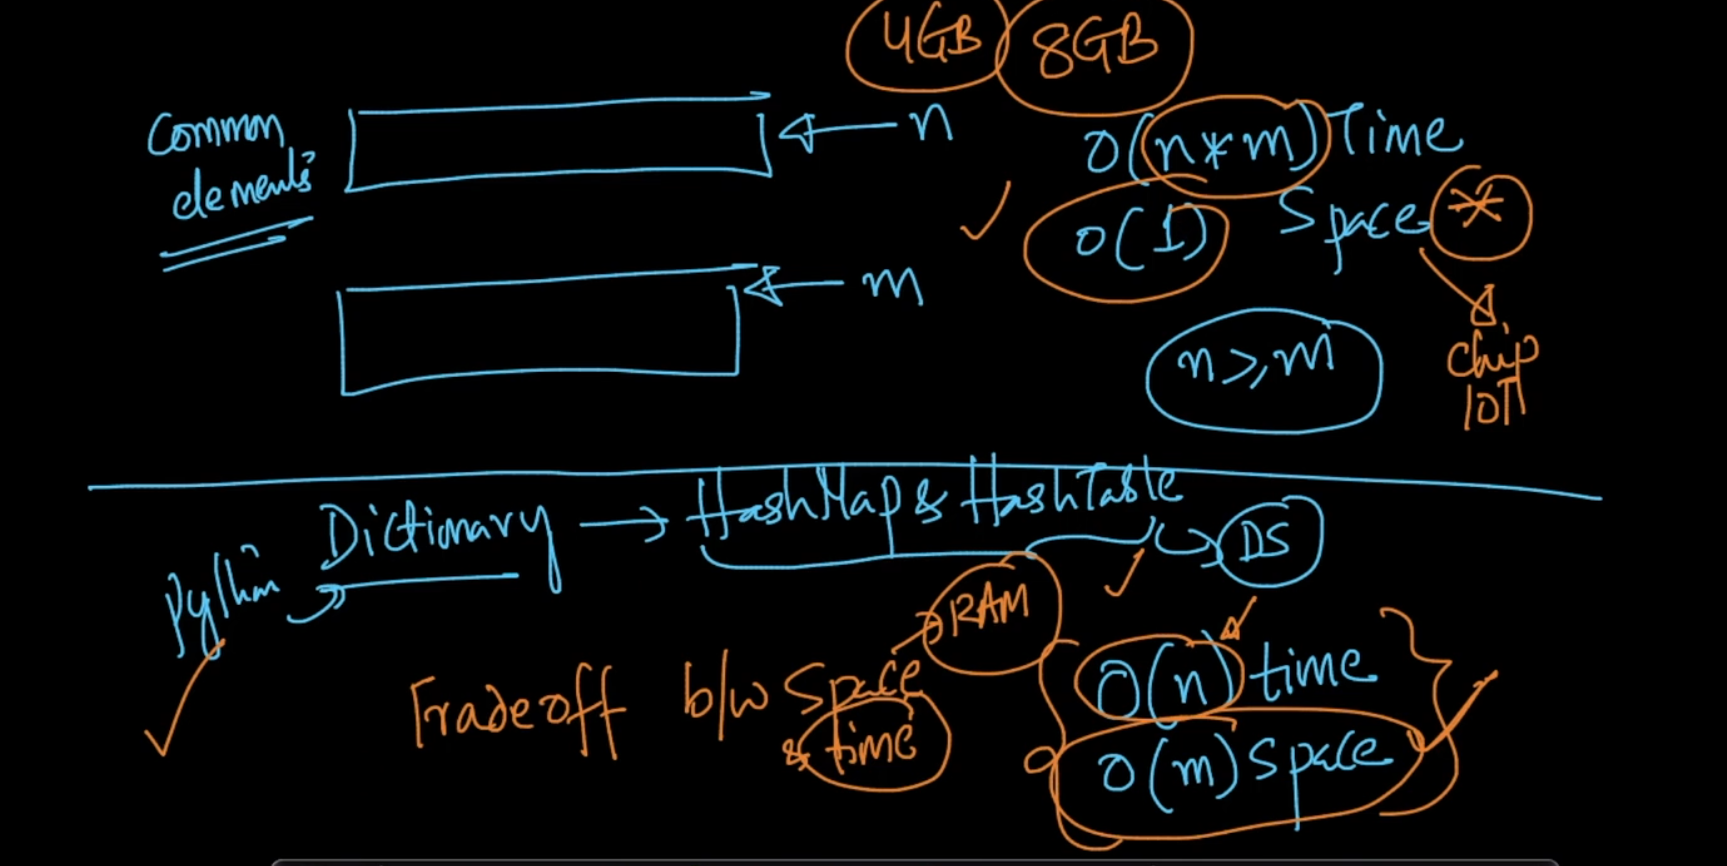 4GB 8GB
Common
elements
n
O(n*m) Time
O(1) Space *
m
n>,m
Chip
IOT
Python Dictionary → HashMap & HashTable
DS
RAM
Tradeoff b/w Space
& time
O(n) time
O(m) Space